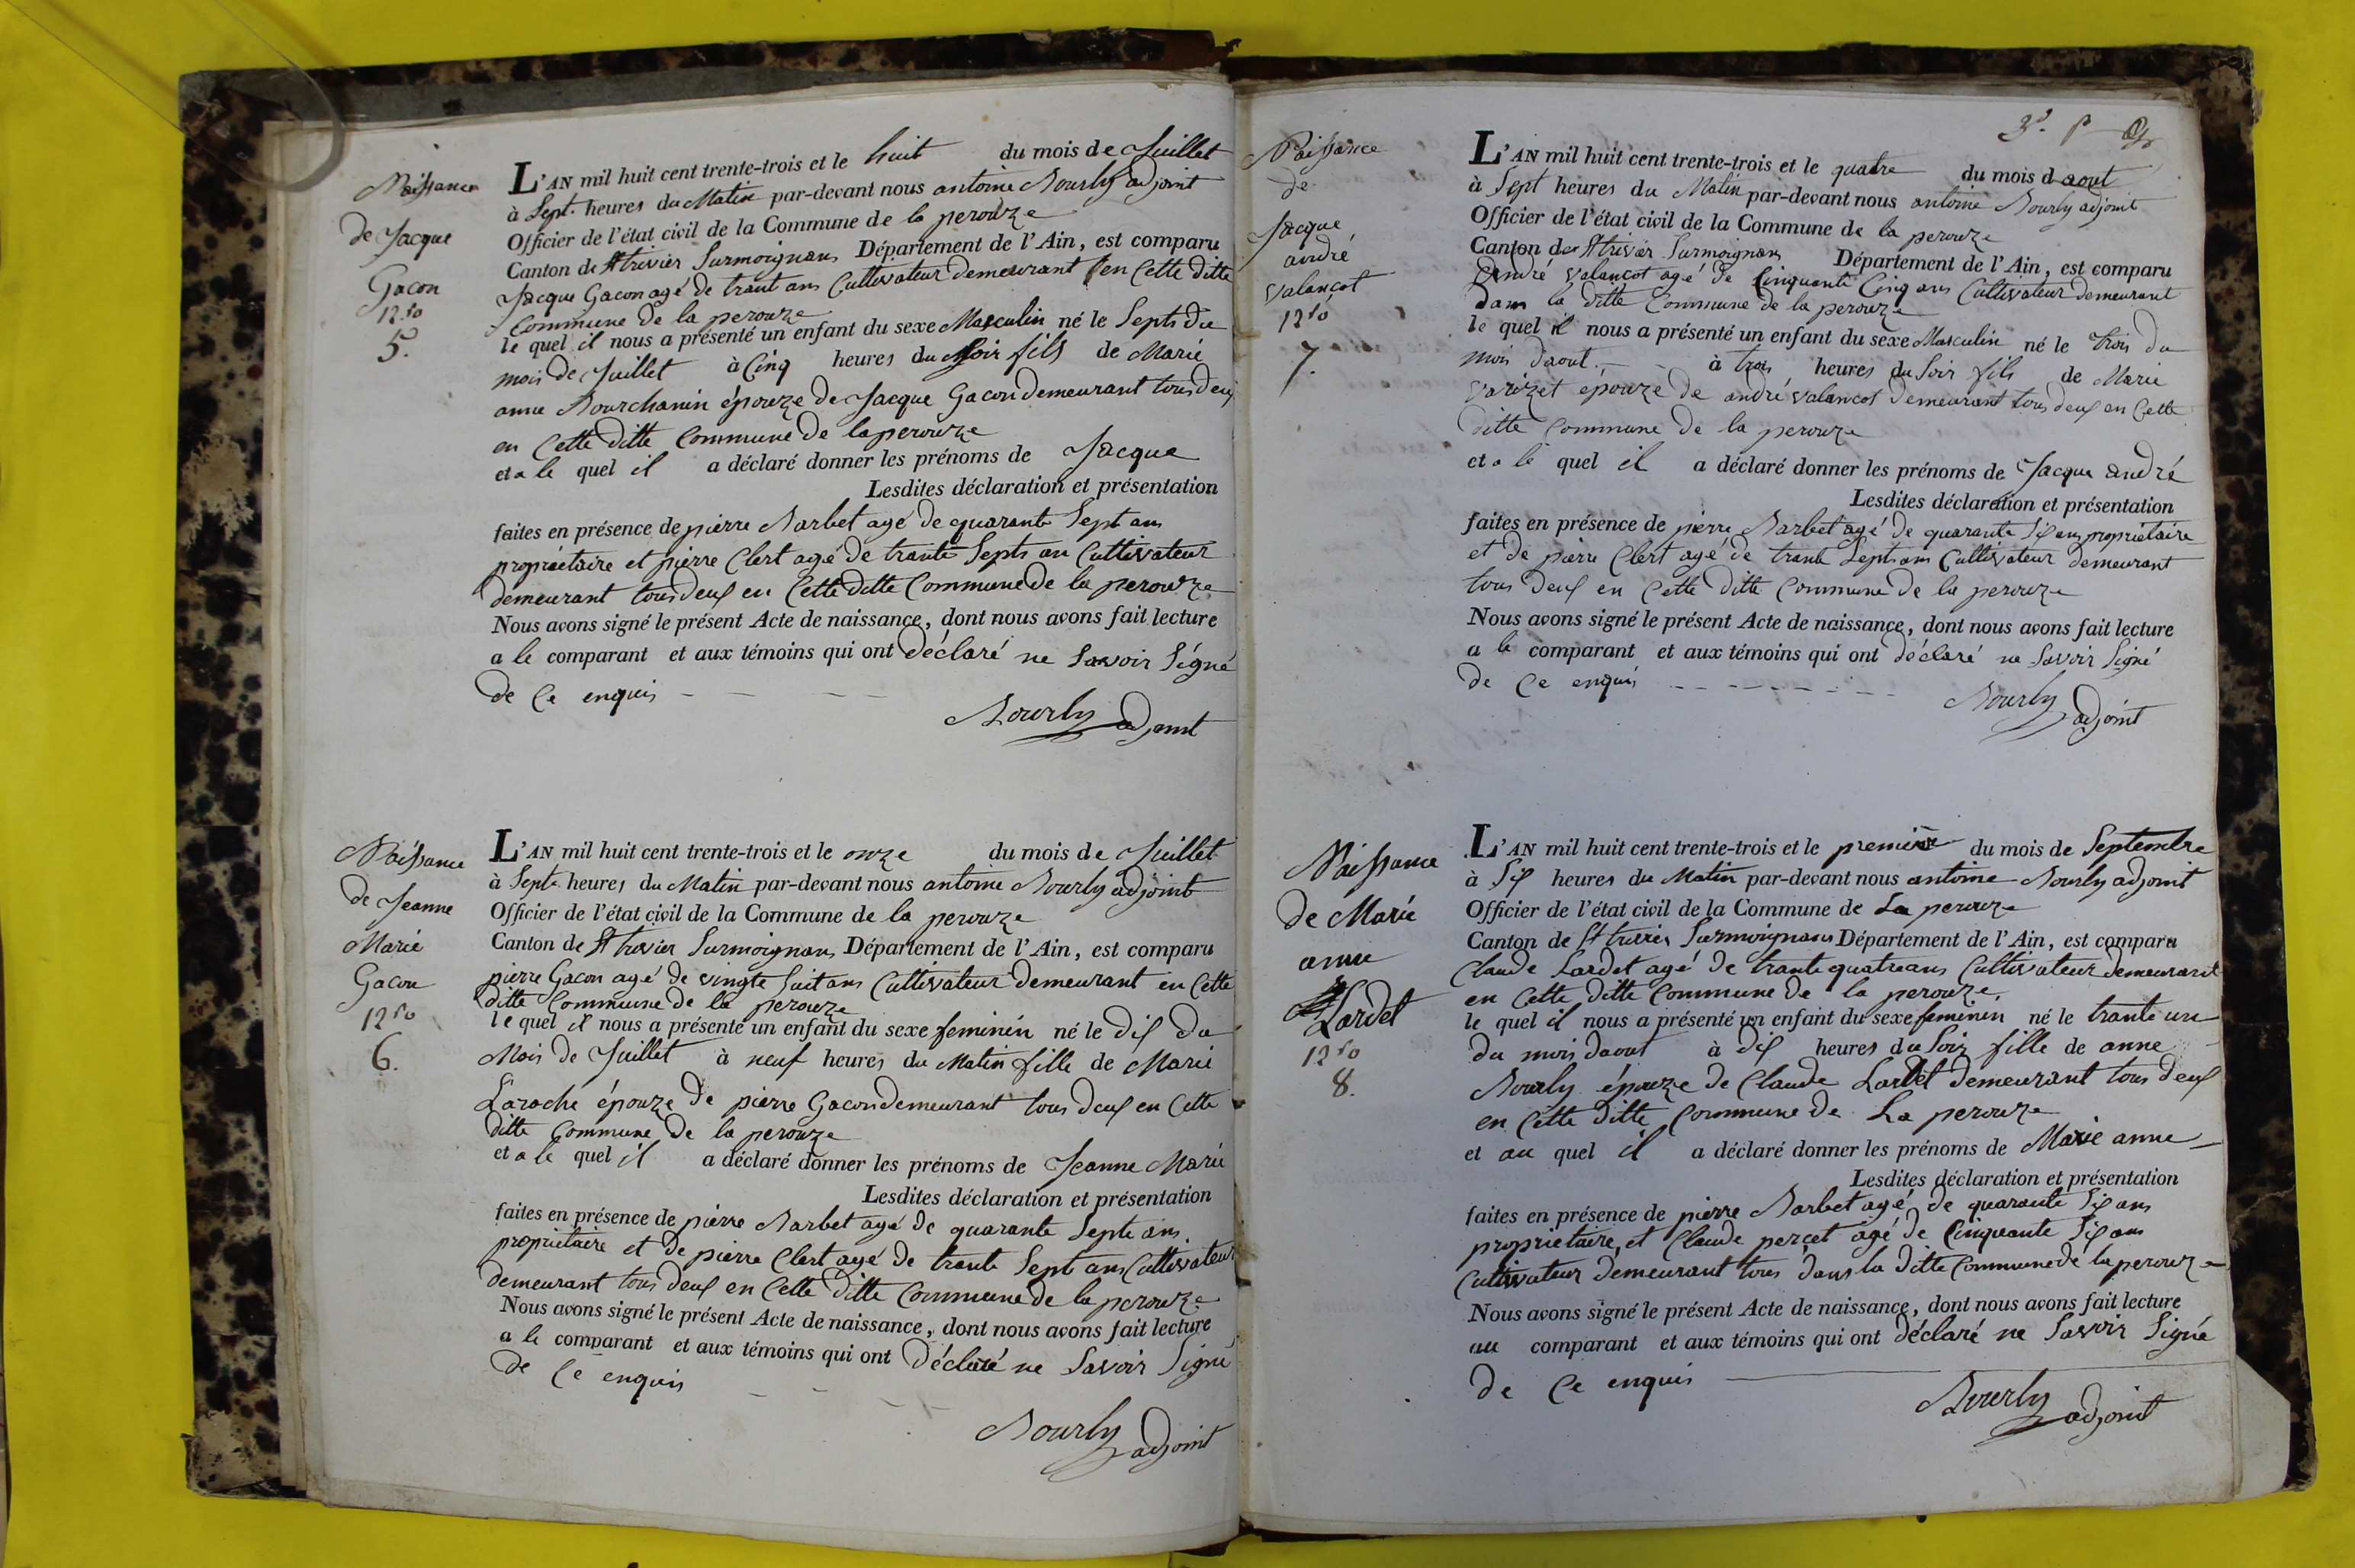 Naissance
de Jacque
Gacon
12.10
5.
L'AN mil huit cent trente-trois et le huit du mois de Juillet
à Sept. heures du Matin par-devant nous antoine Bourly adjoint
Officier de l'état civil de la Commune de la perouze
Canton de St trivier Surmoignans Département de l'Ain, est comparu
Jacque Gacon agé de trant ans Cultivateur demeurant en Cette ditte
Commune de la perouze
le quel il nous a présenté un enfant du sexe Masculin né le Septs du
mois de Juillet à Cinq heures du Soir fils de Marie
anne Bourchanin épouze de Jacque Gacon demeurant tous deux
en Cette ditte Commune de la perouze
et a le quel il a déclaré donner les prénoms de Jacque
Lesdites déclaration et présentation
faites en présence de pierre Barbet agé de quarante Sept ans
propriétaire et pierre Clert agé de trante Septs an Cultivateur
demeurant tous deux en Cette ditte Commune de la perouze
Nous avons signé le présent Acte de naissance, dont nous avons fait lecture
a le comparant et aux témoins qui ont déclaré ne Savoir Signé
de Ce enquis
Bourly adjoint
Naissance
de Jeanne
Marie
Gacon
12.10
6.
L'AN mil huit cent trente-trois et le onze du mois de Juillet
à Sept. heures du Matin par-devant nous antoine Bourly adjoint
Officier de l'état civil de la Commune de la perouze
Canton de St trivier Surmoignans Département de l'Ain, est comparu
pierre Gacon agé de vingte huit ans Cultivateur demeurant en Cette
ditte Commune de la perouze
le quel il nous a présenté un enfant du sexe feminin né le dix du
Mois de Juillet à neuf heures du Matin fille de Marie
Laroche épouze de pierre Gacon demeurant tous deux en Cette
ditte Commune de la perouze
et a le quel il a déclaré donner les prénoms de Jeanne Marie
Lesdites déclaration et présentation
faites en présence de pierre Barbet agé de quarante Septe ans
propriétaire et de pierre Clert agé de trante Sept ans Cultivateur
demeurant tous deux en Cette ditte Commune de la perouze
Nous avons signé le présent Acte de naissance, dont nous avons fait lecture
a le comparant et aux témoins qui ont déclaré ne Savoir Signé
de Ce enquis
Bourly adjoint
Naissance
de
Jacque
andré
valançot
12.10
7.
L'AN mil huit cent trente-trois et le quatre du mois d aout
à Sept heures du Matin par-devant nous antoine Bourly adjoint
Officier de l'état civil de la Commune de la perouze
Canton de St trivier Surmoignans Département de l'Ain, est comparu
andré valançot agé de Cinquante Cinq ans Cultivateur demeurant
dans la ditte Commune de la perouze
le quel il nous a présenté un enfant du sexe Masculin né le trois du
mois d'aout à trois heures du Soir fils de Marie
varizet épouze de andré valancot demeurant tous deux en Cette
ditte Commune de la perouze
et a le quel il a déclaré donner les prénoms de Jacque andré
Lesdites déclaration et présentation
faites en présence de pierre Barbet agé de quarante Six ans propriétaire
et de pierre Clert agé de trante Septs ans Cultivateur demeurant
tous deux en Cette ditte Commune de la perouze
Nous avons signé le présent Acte de naissance, dont nous avons fait lecture
a le comparant et aux témoins qui ont déclaré ne Savoir Signé
de Ce enquis
Bourly adjoint
Naissance
de Marie
anne
Lardet
12.10
8.
L'AN mil huit cent trente-trois et le premier du mois de Septembre
à Six heures du Matin par-devant nous antoine Bourly adjoint
Officier de l'état civil de la Commune de La perouze
Canton de St trivier Surmoignans Département de l'Ain, est comparu
Claude Lardet agé de trante quatre ans Cultivateur demeurant
en Cette ditte Commune de la perouze
le quel il nous a présenté un enfant du sexe feminin né le trante un
du mois daout à dix heures du Soir fille de anne
Bourly épouze de Claude Lardet demeurant tous deux
en Cette ditte Commune de La perouze
et au quel il a déclaré donner les prénoms de Marie anne
Lesdites déclaration et présentation
faites en présence de pierre Barbet agé de quarante Six ans
proprietaire, et Claude percet agé de Cinquante Six ans
Cultivateur demeurant tous dans la ditte Commune de la perouze
Nous avons signé le présent Acte de naissance, dont nous avons fait lecture
au comparant et aux témoins qui ont déclaré ne Savoir Signé
de Ce enquis
Bourly adjoint